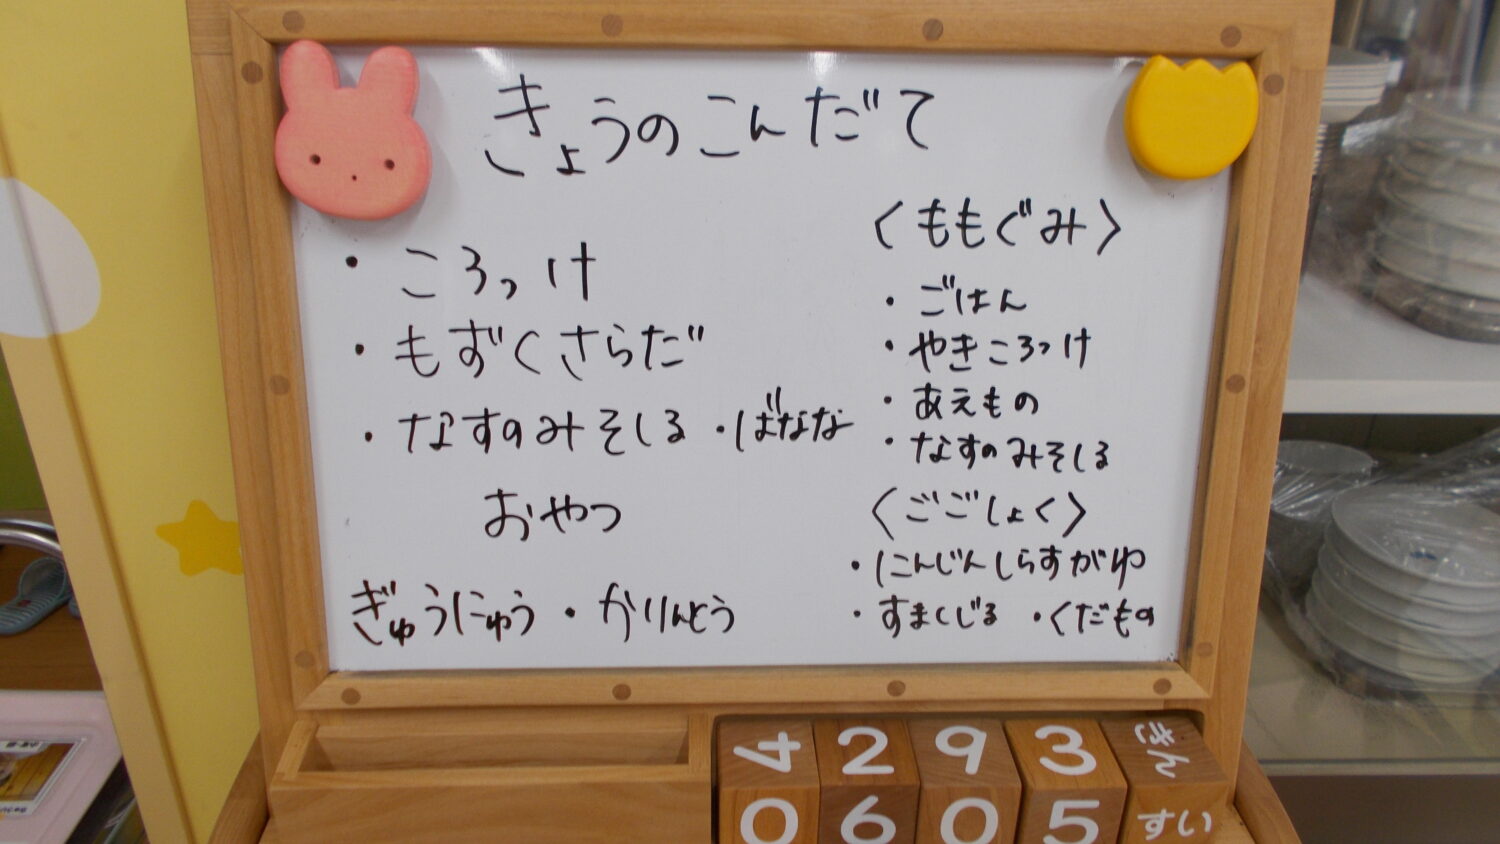 きょうのこんだて
・ころっけ
・もずくさらだ
・なすのみそしる ・ばなな
おやつ
ぎゅうにゅう・かりんとう
〈ももぐみ〉
・ごはん
・やきころっけ
・あえもの
・なすのみそしる
〈ごごしょく〉
・にんじんしらすがゆ
・すましじる ・くだもの
4 2 9 3 きん
0 6 0 5 すい